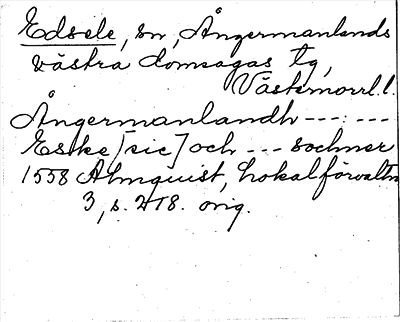 Edsele, sn, Ångermanlands
västra domsagas tg,
Västernorrl. l.
Ångermanlandh --- : ---
Eske [sic] och --- sochner
1558 Almquist, Lokalförvaltn
3, s. 218. orig.